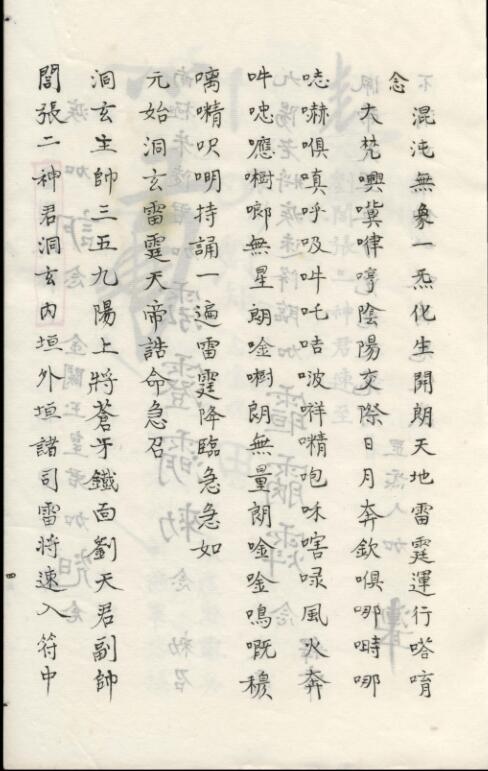 念
混沌無象一炁化生開朗天地雷霆運行嗒唷
大梵㘋嘳嘩哼陰陽交際日月奔欽㖵哪㖷哪
嗭嚇㖵嗔呼吸吽吒咭啵哶㗌咆咊嗐㖨風火奔
吽忠應㗰啷無星朗唫㗰朗無量朗唫唫鳴嘅穰
嚆㗌呎明持誦一遍雷霆降臨急急如
元始洞玄雷霆天帝誥命急召
洞玄主帥三五九陽上將蒼牙鐵面劉天君副帥
閻張二神君洞玄內垣外垣諸司雷將速入符中